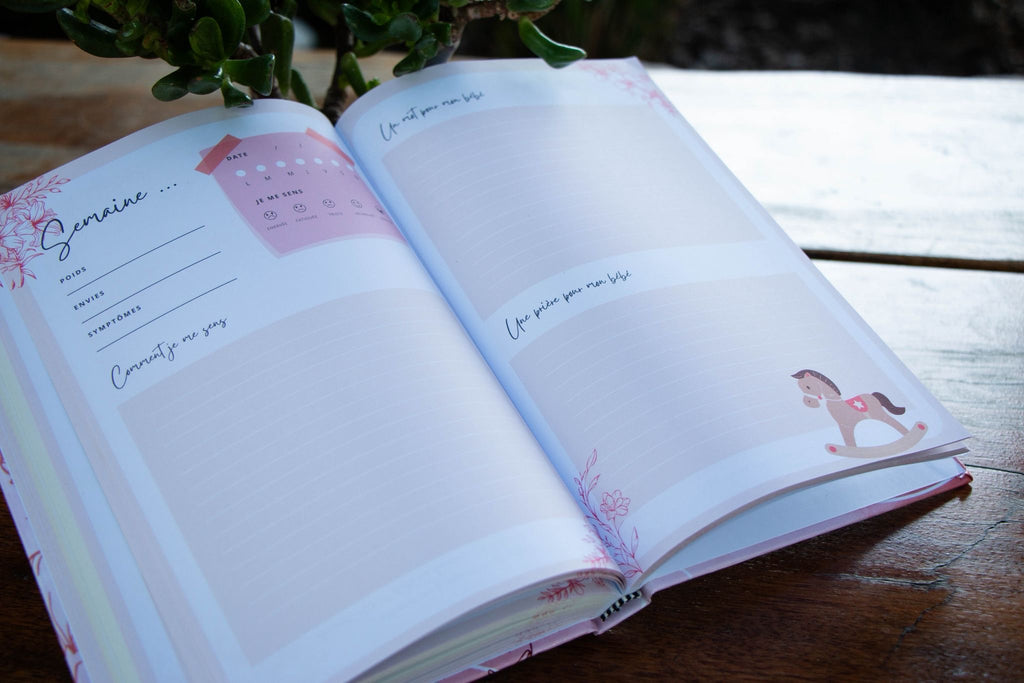 Semaine ...
DATE / /
L M M J V S
JE ME SENS
ÉNERGISÉE FATIGUÉE TRISTE
POIDS
ENVIES
SYMPTÔMES
Comment je me sens
Un mot pour mon bébé
Une prière pour mon bébé